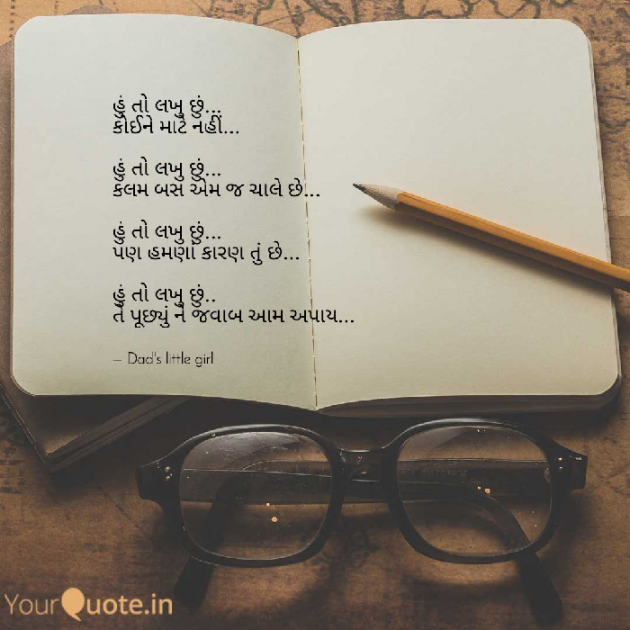 હું તો લખુ છું...
કોઈને માટે નહીં...
હું તો લખુ છું...
કલમ બસ એમ જ ચાલે છે...
હું તો લખુ છું...
પણ હમણાં કારણ તું છે...
હું તો લખુ છું..
તે પૂછ્યું ને જવાબ આમ અપાય...
– Dad's little girl
YourQuote.in